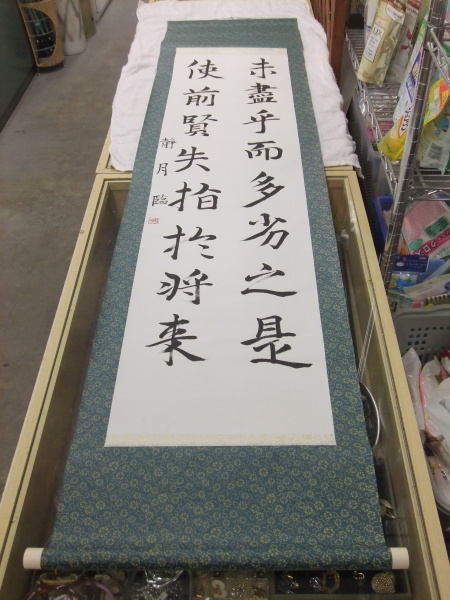 未盡乎而多劣之是
使前賢失指於将来
静月臨